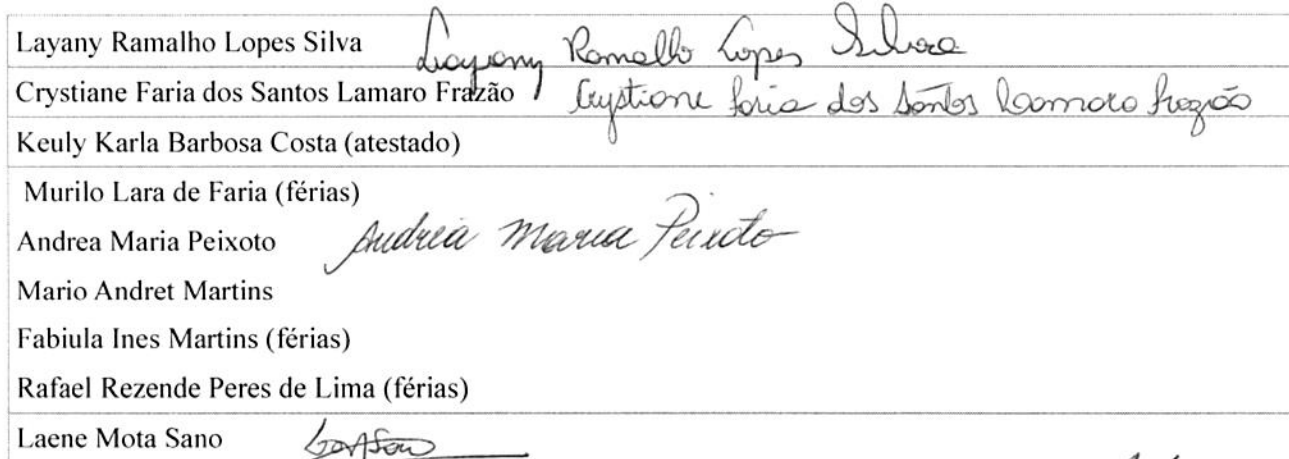 Layany Ramalho Lopes Silva Layany Ramalho Lopes Silva
Crystiane Faria dos Santos Lamaro Frazão Crystiane Faria dos Santos Lamaro Frazão
Keuly Karla Barbosa Costa (atestado)
Murilo Lara de Faria (férias)
Andrea Maria Peixoto Andréia Maria Peixoto
Mario Andret Martins
Fabiula Ines Martins (férias)
Rafael Rezende Peres de Lima (férias)
Laene Mota Sano